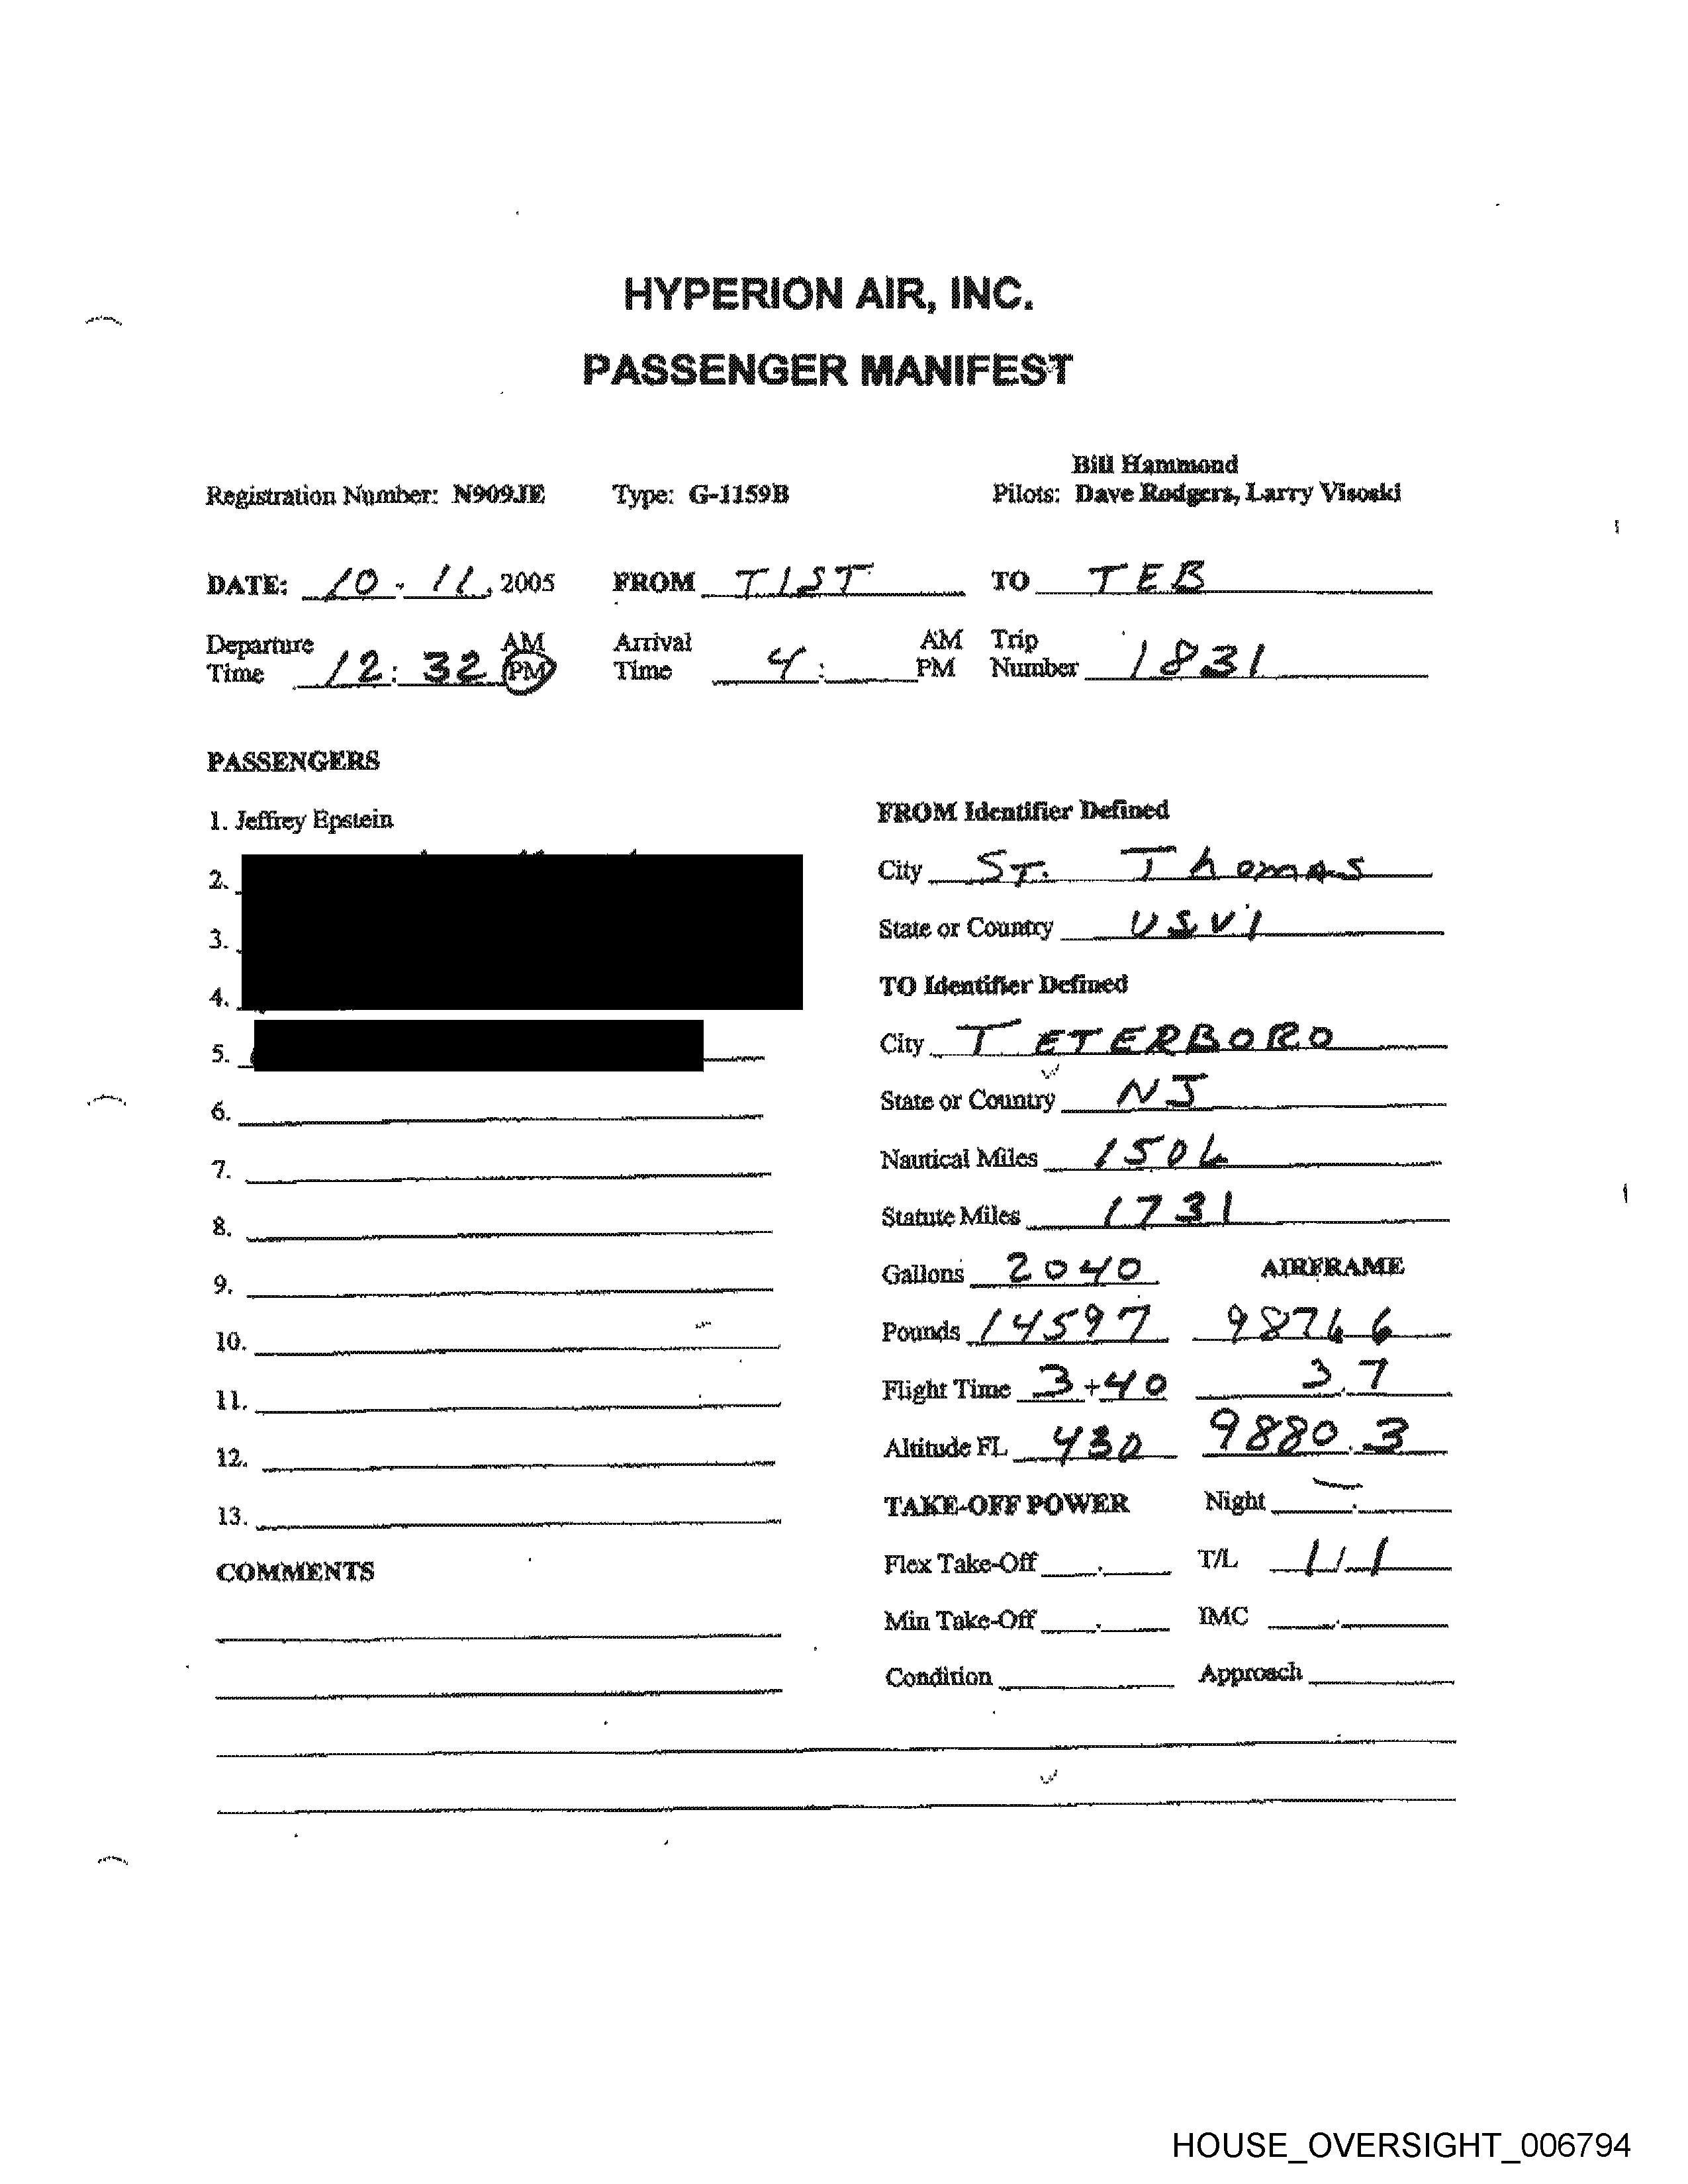 HYPERION AIR, INC.
PASSENGER MANIFEST
Bill Hammond
Registration Number: N909JE Type: G-1159B Pilots: Dave Rodgers, Larry Visoski
DATE: 10 - 11, 2005 FROM TIST TO TEB
Departure Time 12:32 AM PM Arrival Time 4: AM PM Trip Number 1831
PASSENGERS
1. Jeffrey Epstein
2.
3.
4.
5.
6.
7.
8.
9.
10.
11.
12.
13.
COMMENTS
FROM Identifier Defined
City ST. Thomas
State or Country USVI
TO Identifier Defined
City TETERBORO
State or Country NJ
Nautical Miles 1504
Statute Miles 1731
Gallons 2040 AIRFRAME
Pounds 14597 9876 6
Flight Time 3+40 3.7
Altitude FL 430 9880.3
TAKE-OFF POWER Night
Flex Take-Off T/L 1/1
Min Take-Off IMC
Condition Approach
HOUSE_OVERSIGHT_006794